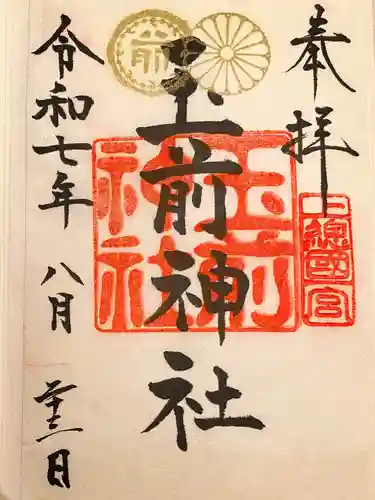 奉拝
上總國宮
玉前神社
玉前神社
前
令和七年 八月 廿三日